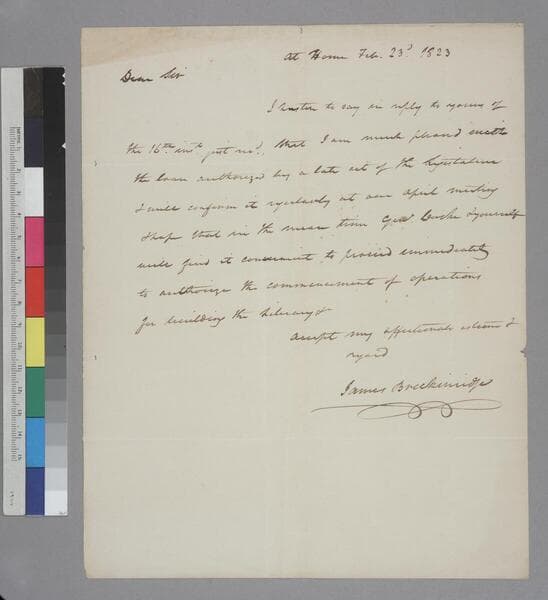 At Home Feb. 23d 1823
Dear Sir
I hasten to say in reply to yours of
the 16th inst. just recd, that I am much pleased with
the loan authorized by a late act of the legislature
I will confirm it regularly at our April meeting
I hope that in the mean time Genl Cocke & yourself
will find it convenient to proceed immediately
to authorize the commencement of operations
for building the Library &
accept my affectionate esteem &
regard
James Breckinridge